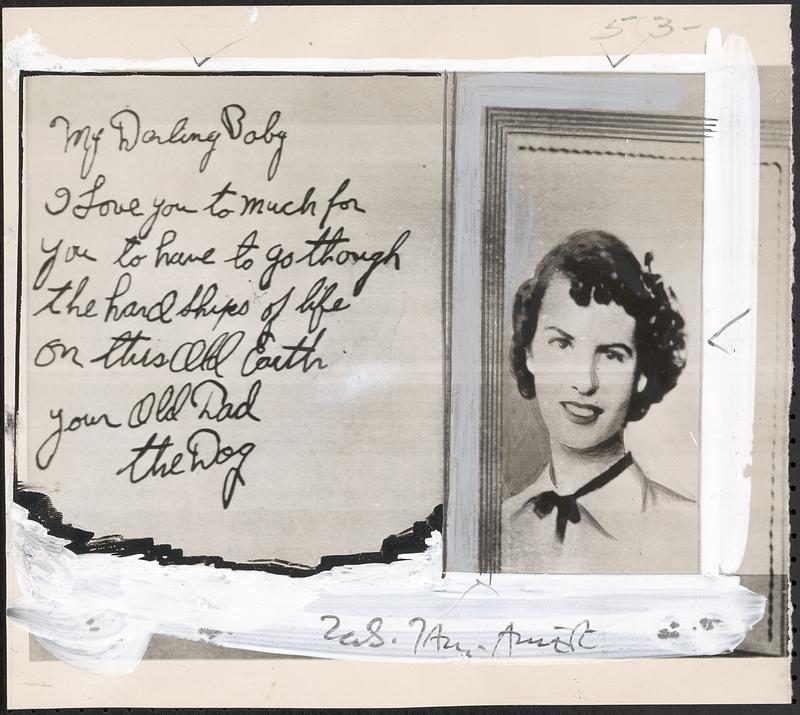 53-
My Darling Baby
I Love you to much for
you to have to go though
the hard ships of life
on this Old Earth
your Old Dad
the Dog